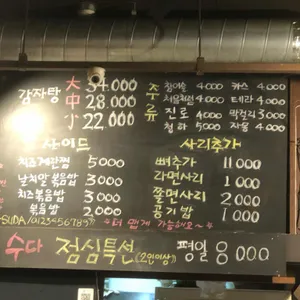 감자탕 大 34.000
中 28.000
小 22.000
주류
참이슬 4.000 카스 4.000
처음처럼 4.000 테라 4.000
진로 4.000 막걸리 3.000
청하 5.000 자몽 4.000
사이드
치즈계란찜 5000
날치알볶음밥 3000
치즈볶음밥 3000
볶음밥 2000
사리추가
뼈추가 11000
라면사리 1.000
쫄면사리 2.000
공기밥 1.000
더 맵게 가능해요~
수다 점심특선 (2인이상) 평일 8000